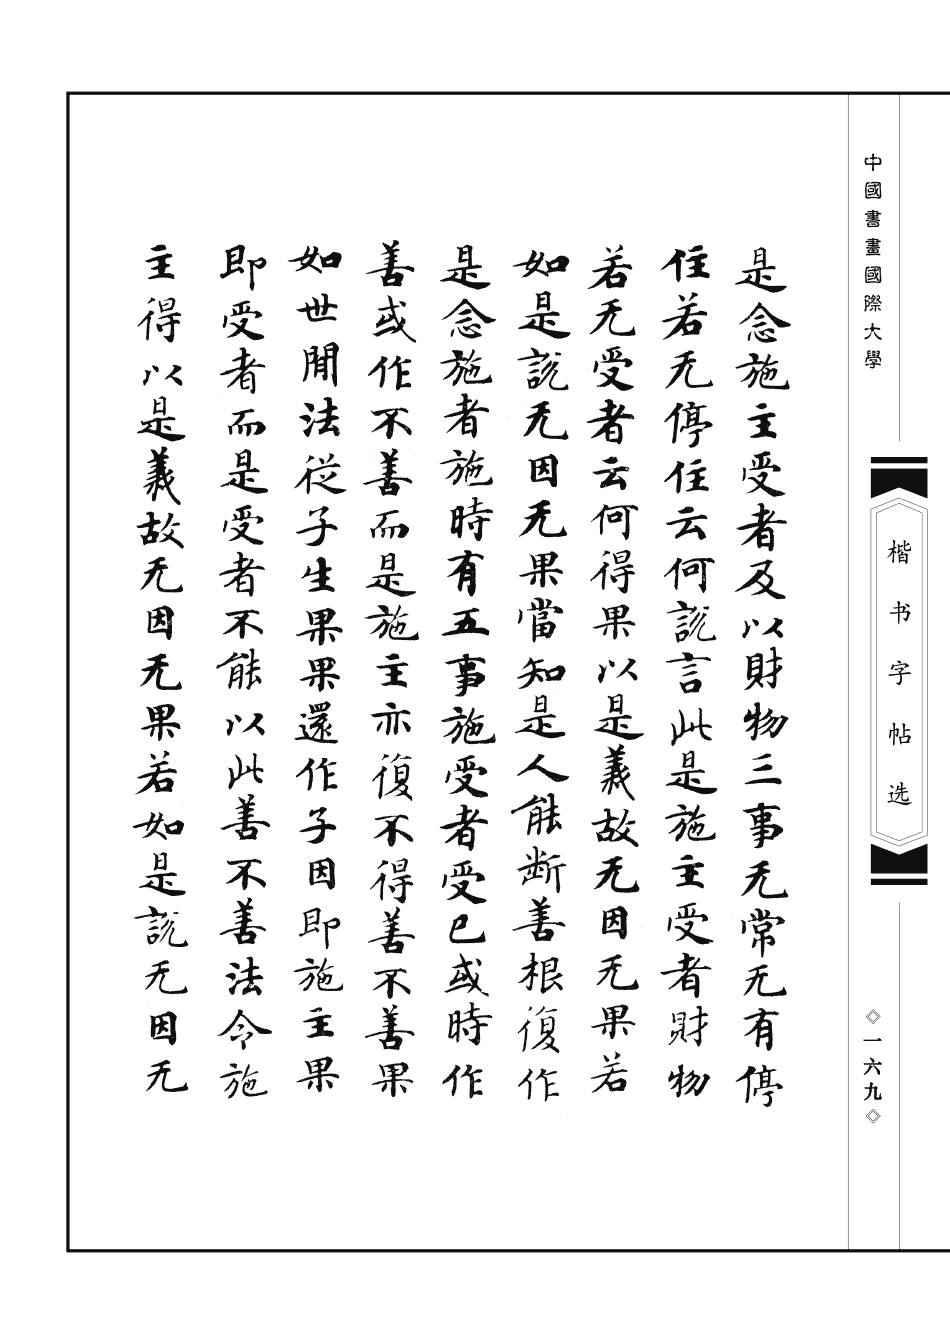 中國書畫國際大學
楷书字帖选
◇一六九◇
是念施主受者及以財物三事无常无有停
住若无停住云何説言此是施主受者財物
若无受者云何得果以是義故无因无果若
如是説无因无果當知是人能断善根復作
是念施者施時有五事施受者受已或時作
善或作不善而是施主亦復不得善不善果
如世間法従子生果果還作子因即施主果
即受者而是受者不能以此善不善法令施
主得以是義故无因无果若如是説无因无